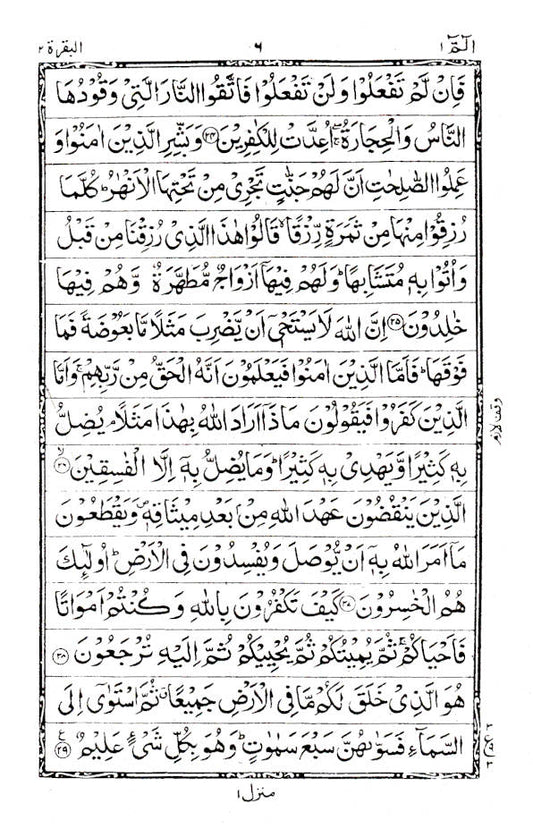 الٓمّٓ ١ ٦ البقرة ٢
فَاِنْ لَّمْ تَفْعَلُوْا وَلَنْ تَفْعَلُوْا فَاتَّقُوا النَّارَ الَّتِيْ وَقُوْدُهَا
النَّاسُ وَالْحِجَارَةُ ۖۚ اُعِدَّتْ لِلْكٰفِرِيْنَ ﴿٢٤﴾ وَبَشِّرِ الَّذِيْنَ اٰمَنُوْا وَ
عَمِلُوا الصّٰلِحٰتِ اَنَّ لَهُمْ جَنّٰتٍ تَجْرِيْ مِنْ تَحْتِهَا الْاَنْهٰرُ ؕ كُلَّمَا
رُزِقُوْا مِنْهَا مِنْ ثَمَرَةٍ رِّزْقًا ۙ قَالُوْا هٰذَا الَّذِيْ رُزِقْنَا مِنْ قَبْلُ
وَاُتُوْا بِهٖ مُتَشَابِهًا ؕ وَلَهُمْ فِيْهَآ اَزْوَاجٌ مُّطَهَّرَةٌ ۙ وَّهُمْ فِيْهَا
خٰلِدُوْنَ ﴿٢٥﴾ اِنَّ اللّٰهَ لَا يَسْتَحْيٖٓ اَنْ يَّضْرِبَ مَثَلًا مَّا بَعُوْضَةً فَمَا
فَوْقَهَا ؕ فَاَمَّا الَّذِيْنَ اٰمَنُوْا فَيَعْلَمُوْنَ اَنَّهُ الْحَقُّ مِنْ رَّبِّهِمْ ۚ وَاَمَّا
الَّذِيْنَ كَفَرُوْا فَيَقُوْلُوْنَ مَاذَآ اَرَادَ اللّٰهُ بِهٰذَا مَثَلًا ۘ يُضِلُّ
وقف لازم
بِهٖ كَثِيْرًا وَّيَهْدِيْ بِهٖ كَثِيْرًا ؕ وَمَا يُضِلُّ بِهٖٓ اِلَّا الْفٰسِقِيْنَ ۙ﴿٢٦﴾
الَّذِيْنَ يَنْقُضُوْنَ عَهْدَ اللّٰهِ مِنْۢ بَعْدِ مِيْثَاقِهٖ ۪ وَيَقْطَعُوْنَ
مَآ اَمَرَ اللّٰهُ بِهٖٓ اَنْ يُّوْصَلَ وَيُفْسِدُوْنَ فِي الْاَرْضِ ؕ اُولٰٓئِكَ
هُمُ الْخٰسِرُوْنَ ﴿٢٧﴾ كَيْفَ تَكْفُرُوْنَ بِاللّٰهِ وَكُنْتُمْ اَمْوَاتًا
فَاَحْيَاكُمْ ۚ ثُمَّ يُمِيْتُكُمْ ثُمَّ يُحْيِيْكُمْ ثُمَّ اِلَيْهِ تُرْجَعُوْنَ ﴿٢٨﴾
هُوَ الَّذِيْ خَلَقَ لَكُمْ مَّا فِي الْاَرْضِ جَمِيْعًا ۗ ثُمَّ اسْتَوٰٓى اِلَى
السَّمَآءِ فَسَوّٰىهُنَّ سَبْعَ سَمٰوٰتٍ ؕ وَهُوَ بِكُلِّ شَيْءٍ عَلِيْمٌ ﴿٢٩﴾
منزل ١